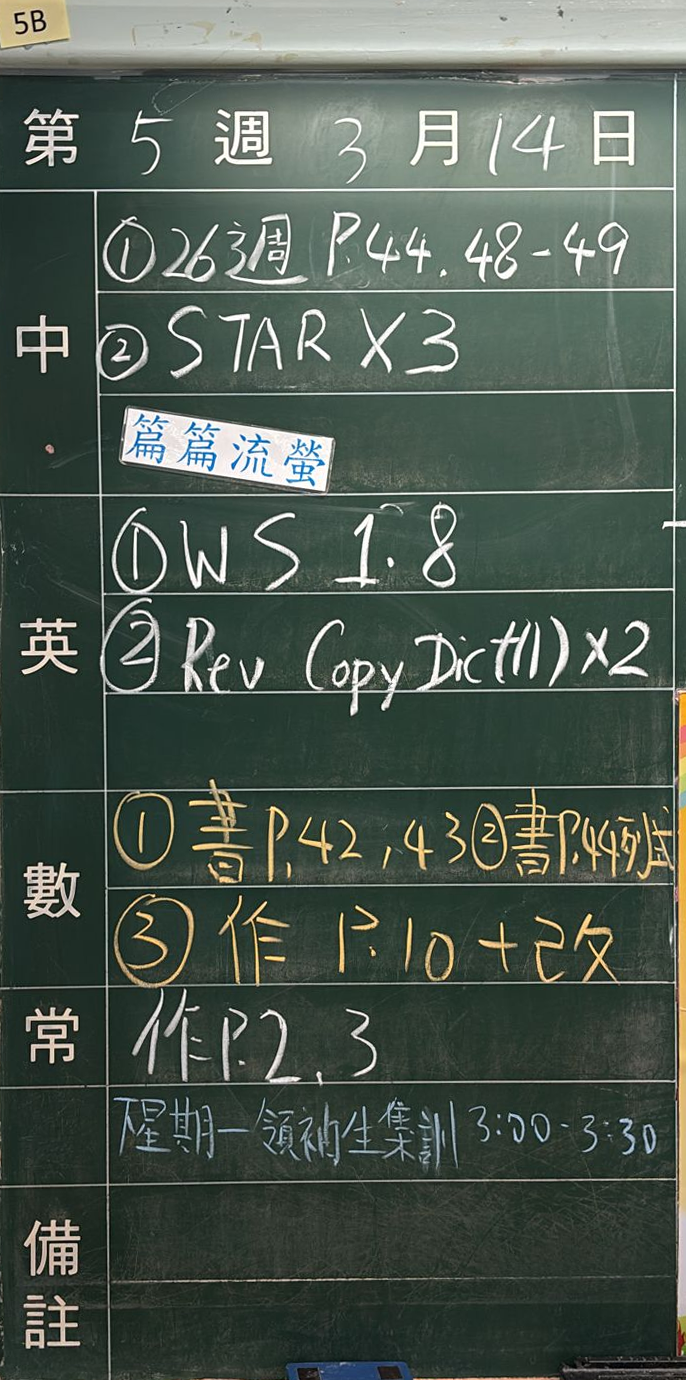 5B
第 5 週 3 月 14 日
中
①26週 P.44. 48-49
② STAR X3
篇篇流螢
英
①WS 1.8
②Rev Copy Dict(11) x2
數
①書P.42,43②書P.44例試
③作 P.10+改
常
作P.2,3
下星期一領袖生集訓 3:00-3:30
備註